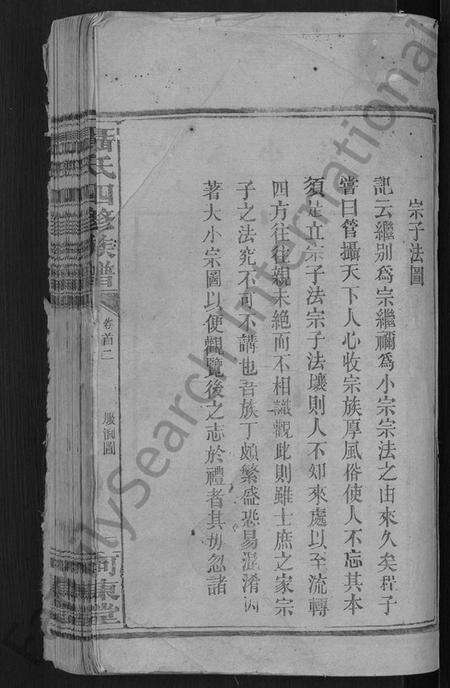 宗子法圖
記云繼别為宗繼禰為小宗宗法之由來久矣程子
嘗曰管攝天下人心收宗族厚風俗使人不忘其本
須是立宗子法宗子法壞則人不知來處以至流轉
四方往往親未絶而不相識觀此則雖士庶之家宗
子之法究不可不講也吾族丁頗繁盛恐易混淆因
著大小宗圖以便觀覽後之志於禮者其毋忽諸
聶氏四修族譜
卷首二
服制圖
河東堂
FamilySearch International